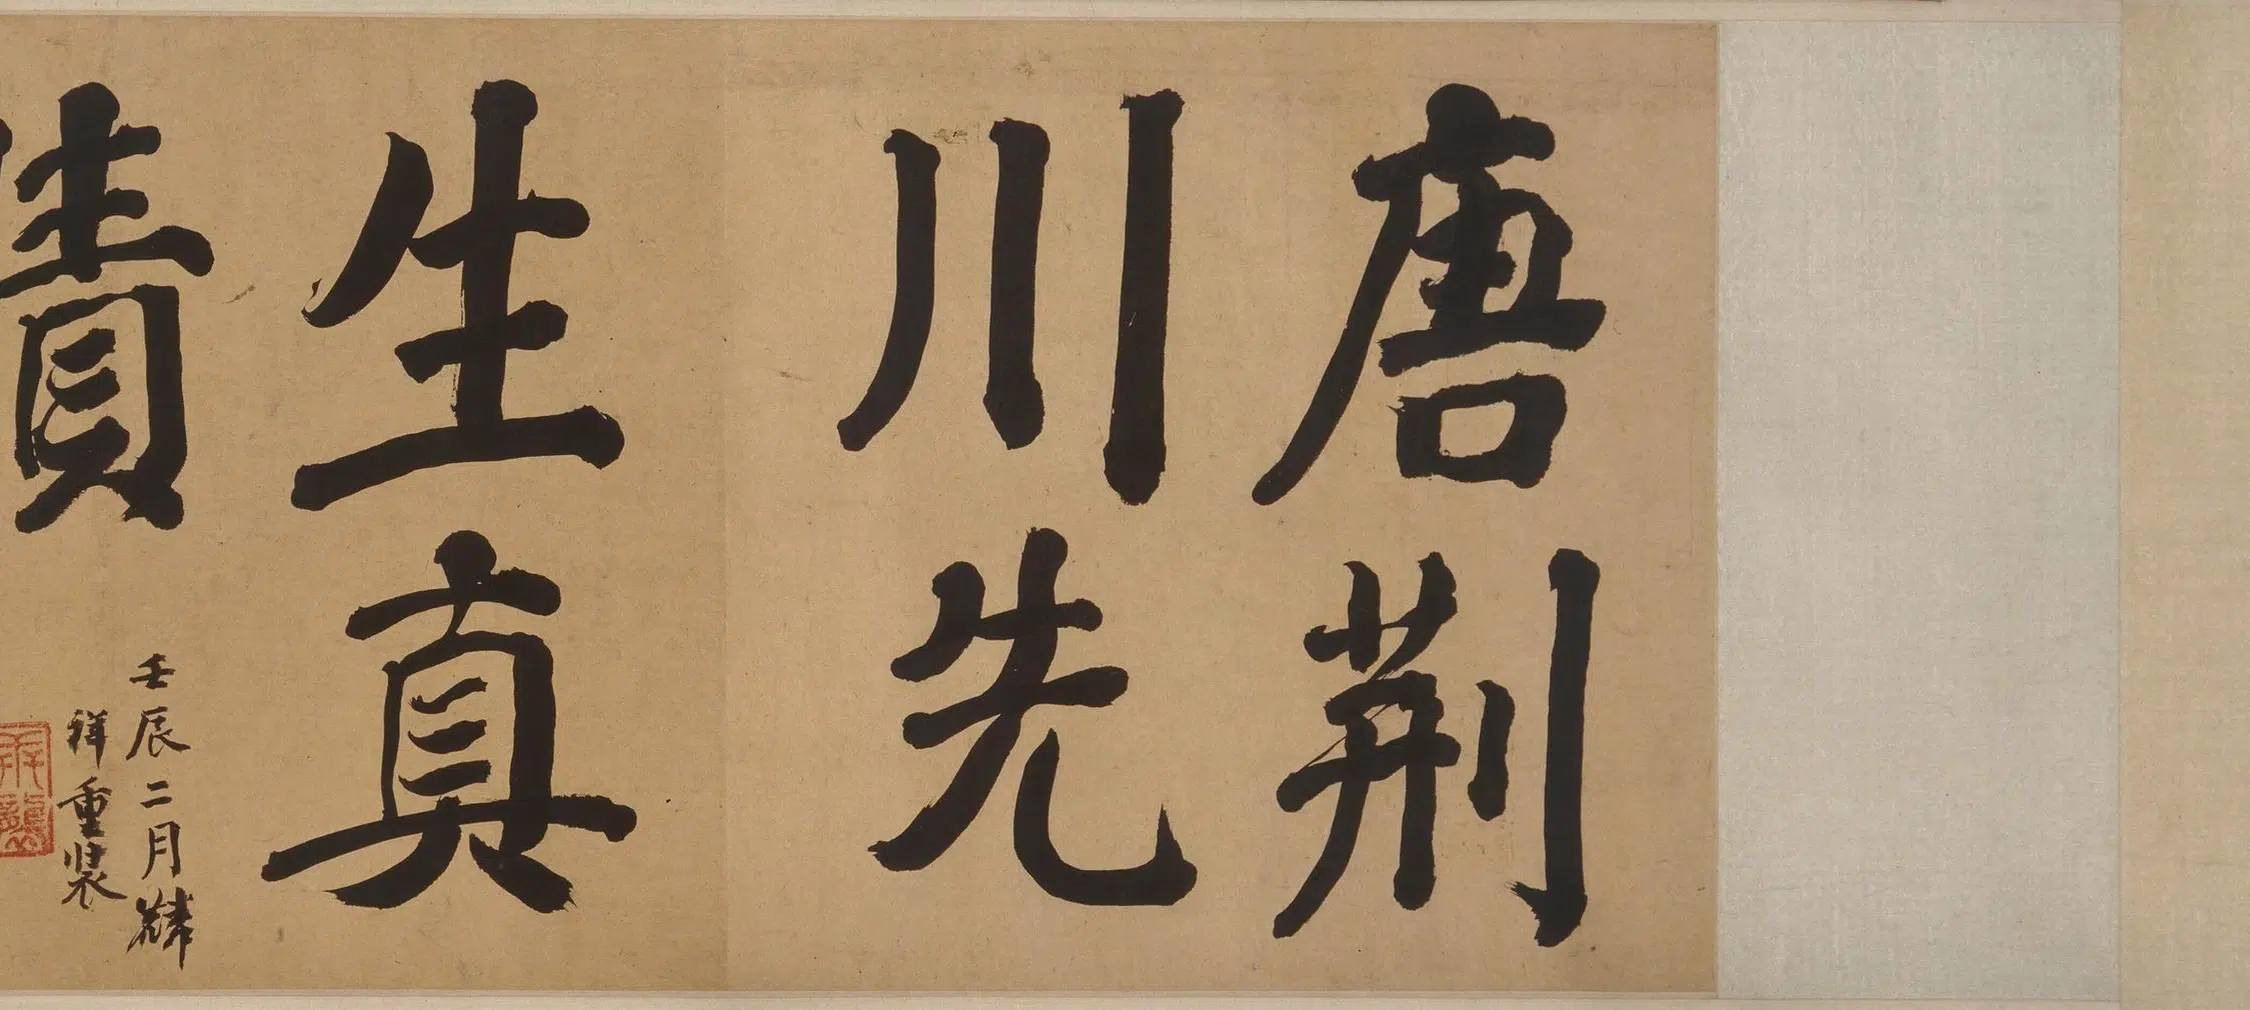 唐荆
川先
生真
壬辰二月
祥重装